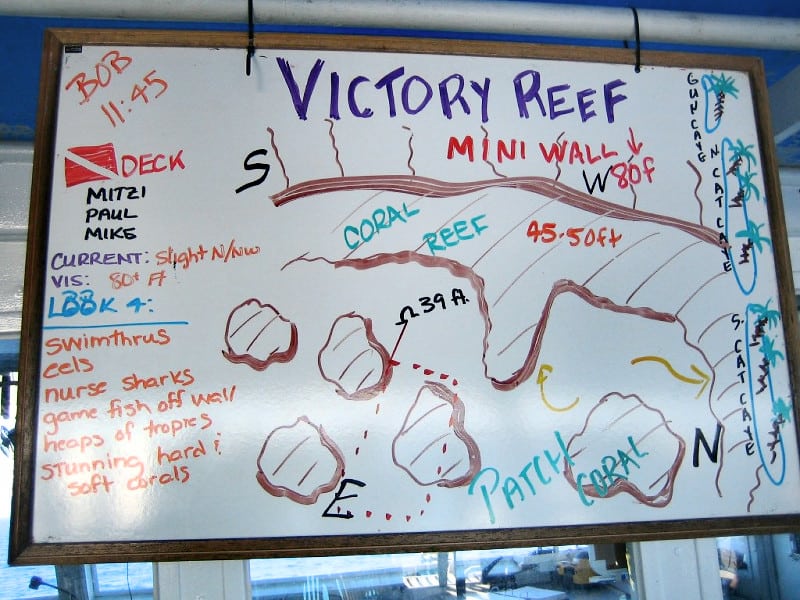 BOB
11:45
VICTORY REEF
DECK
MITZI
PAUL
MIKE
CURRENT: Slight N/NW
VIS: 80+ Ft
LOOK 4:
SWIMTHRUS
eels
nurse sharks
game fish off wall
heaps of tropics
stunning hard &
soft corals
S
MINI WALL
W
80f
CORAL REEF
45-50ft
39 ft.
E
PATCH CORAL
N
GUN CAYE
N. CAT CAYE
S. CAT CAYE